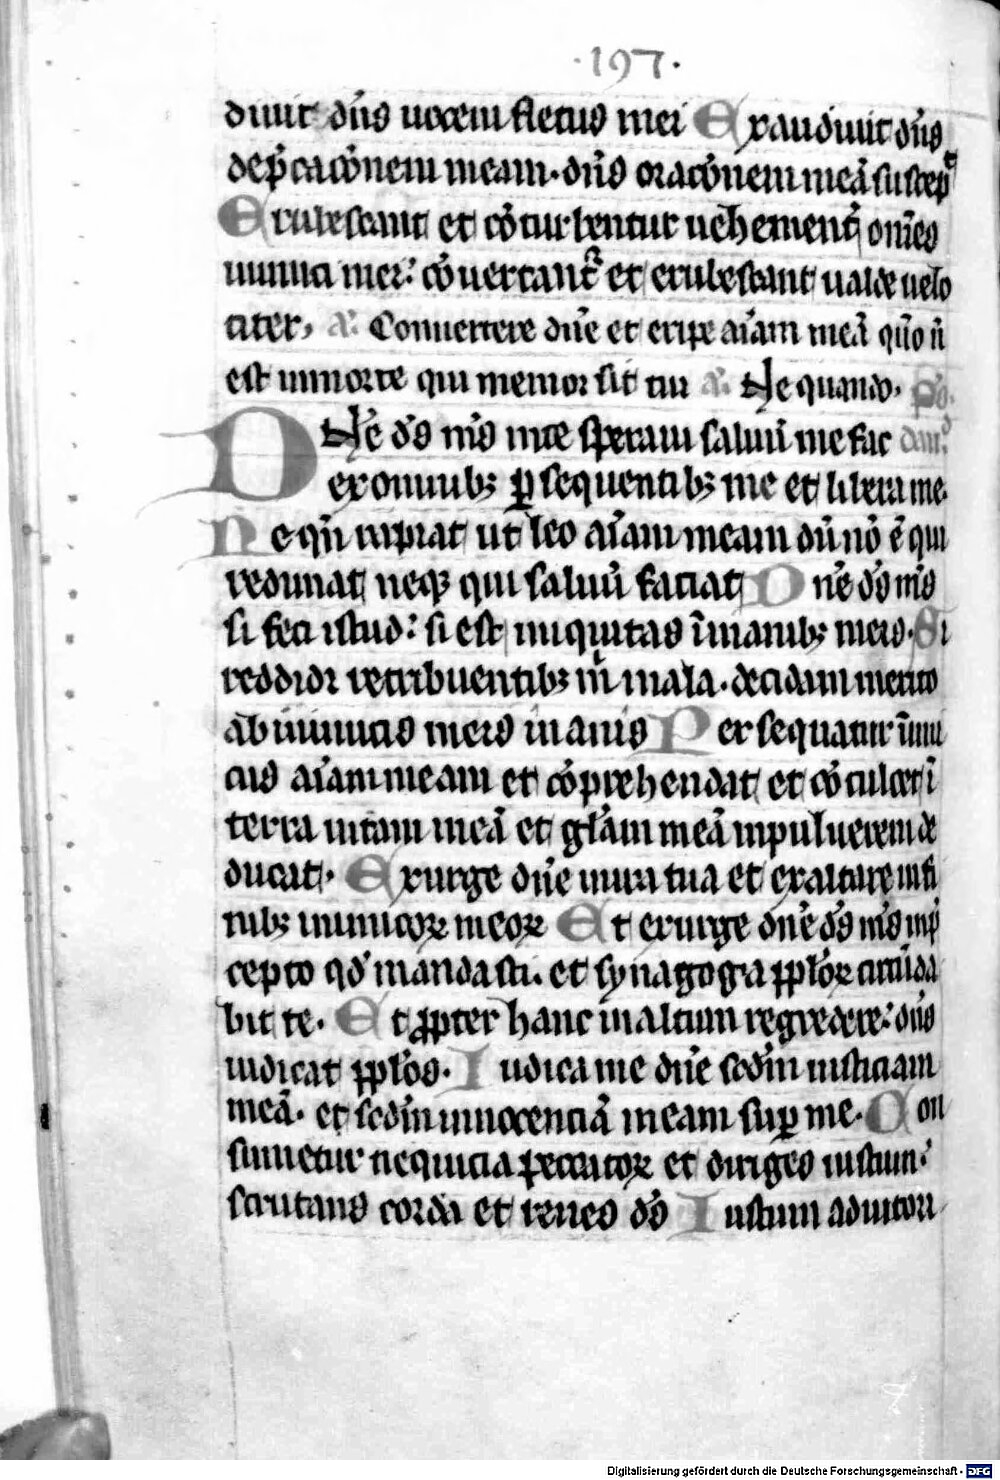 ·197·
diuit dn̄s uocem fletus mei Exaudiuit dn̄s
dep̄cacōnem meam· dn̄s oracōnem meā suscep̄
Erubescant et cōturbentur uehement̄ om̄es
inimici mei: cōuertant̄ et erubescant ualde uelo
citer, a᷎. Conuertere dn̄e et eripe aīam meā qm̄o n̄
est in morte qui memor sit tui a᷎. Ne quando· p̄s.
DNe ds̄ ms̄ in te speraui saluū me fac dauid
ex omnibꝫ ꝑsequentibꝫ me et libera me·
Ne qn̄ rapiat ut leo aīam meam dū nō ē qui
redimat neqꝫ qui saluū faciat Dne ds̄ ms̄
si feci istud: si est iniquitas ī manibꝫ meis· Si
reddidi retribuentibꝫ m̄ mala· decidam merito
ab inimicis meis inanis Persequatur inimi
cus aīam meam et cōprehendat et cōculcet ī
terra uitam meā et glām meā in puluerem de
ducat· Exurge dn̄e in ira tua et exaltare in fi
nibꝫ inimicoꝝ meoꝝ Et exurge dn̄e ds̄ ms̄ in p̄
cepto qd̄ mandasti· et synagoga pploꝝ circūda
bit te· Et ꝓpter hanc in altum regredere: dn̄s
iudicat pplos· Iudica me dn̄e scdm̄ iusticiam
meā· et scdm̄ innocenciā meam suꝑ me· Con
sumetur nequicia peccatoꝝ et diriges iustum:
scrutans corda et renes ds̄ Iustum adiutori
Digitalisierung gefördert durch die Deutsche Forschungsgemeinschaft - DFG